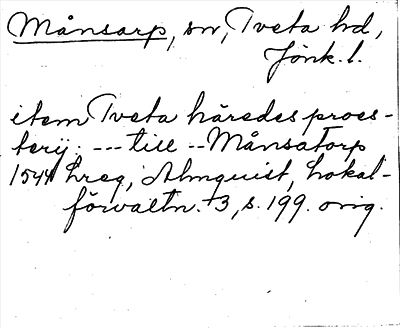 Månsarp, sn, Tveta hd,
Jönk. l.
item Tveta häredes proes-
terij. --- till -- Månsatorp
1544 hreg, Almquist, Lokal-
förvaltn. 3, s. 199. orig.